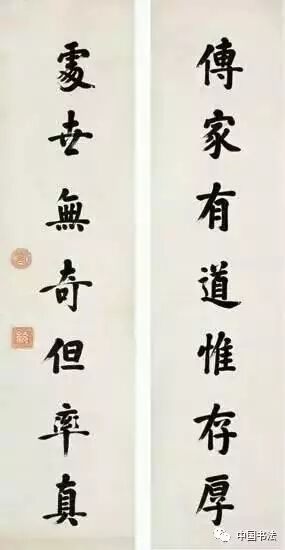 傳家有道惟存厚
處世無奇但率真
中国书法